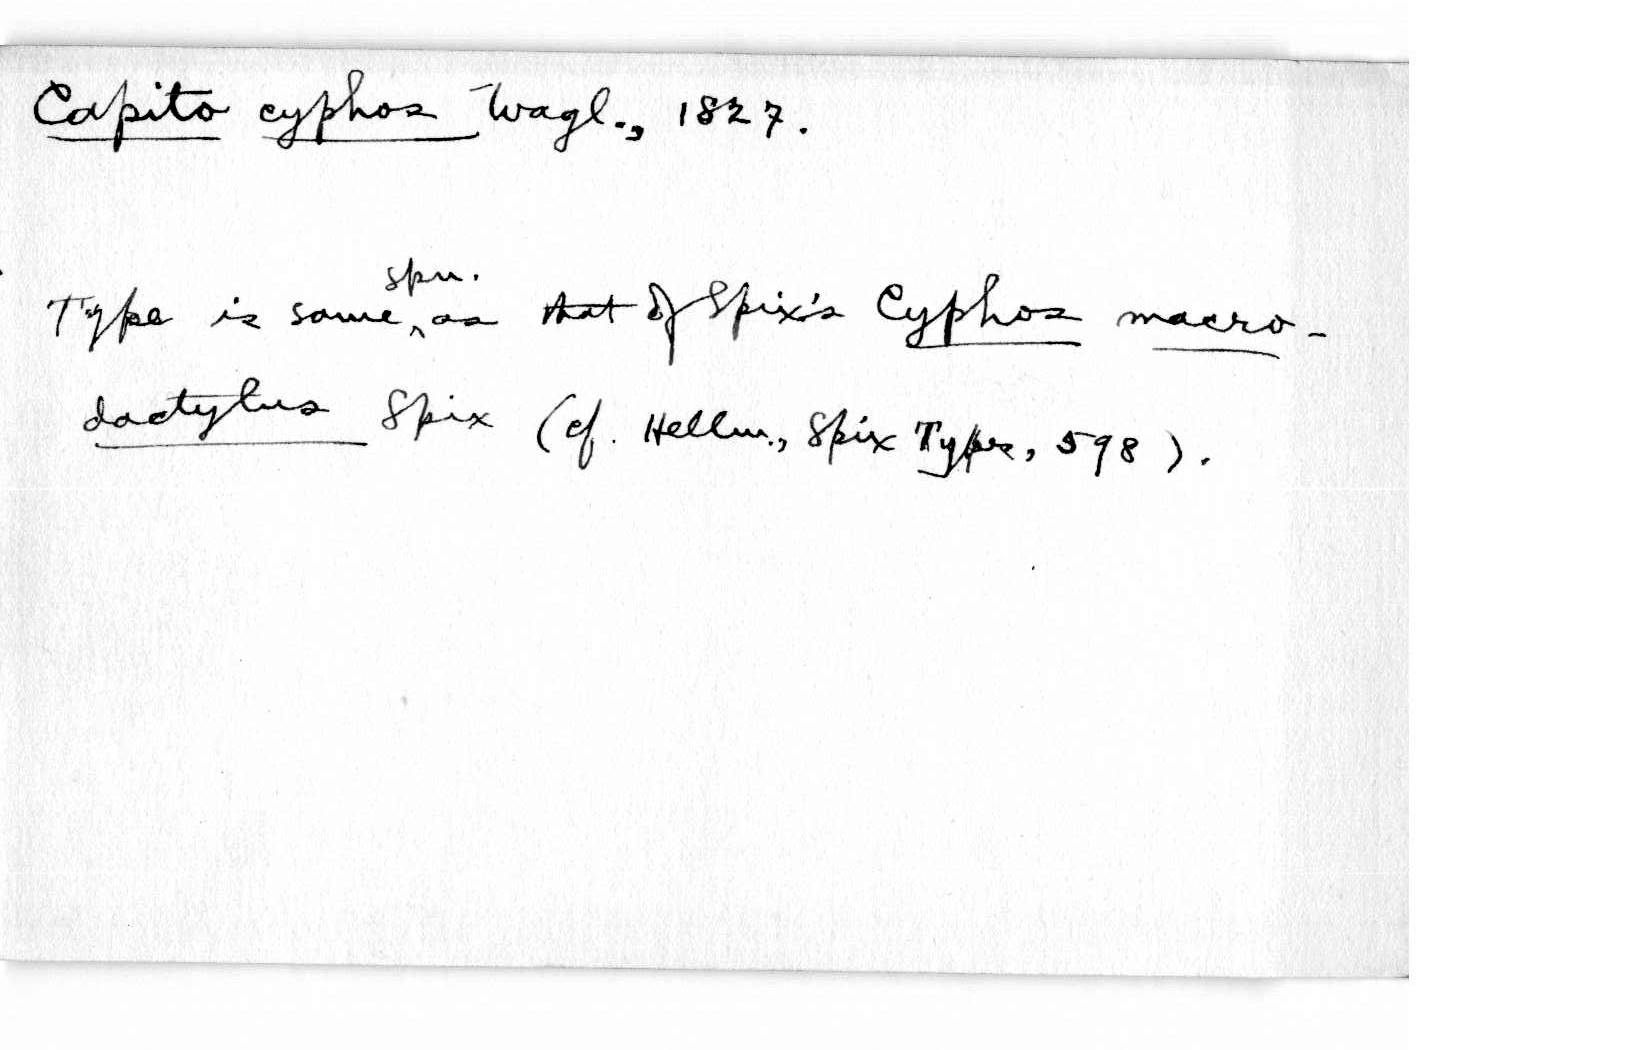 Capito cyphos Wagl., 1827.
spn.
Type is same ‸ as that of Spix's Cyphos macro-
dactylus Spix (cf. Hellm., Spix Types, 598).